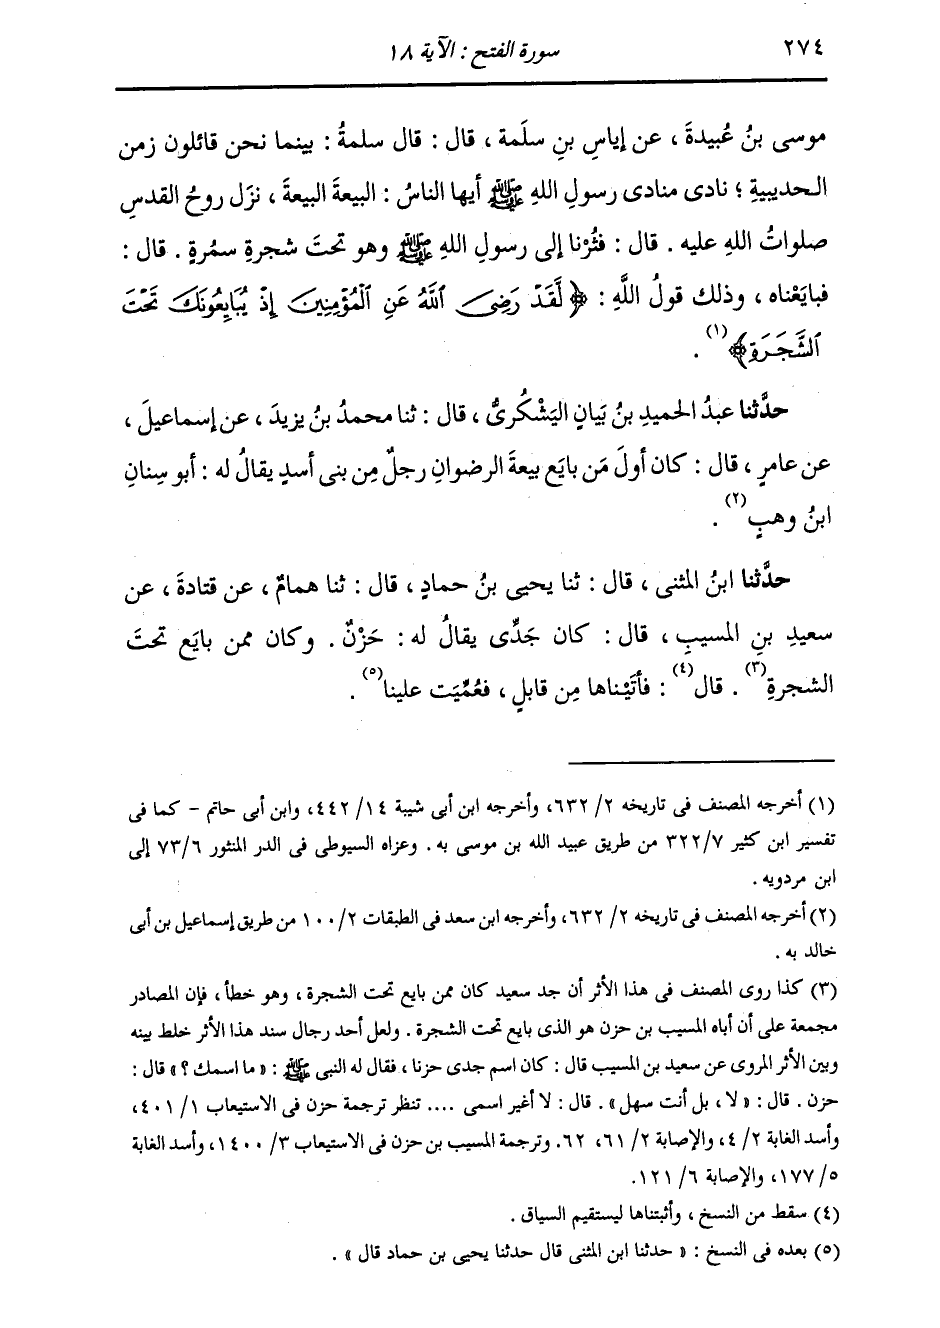 ٢٧٤
سورة الفتح : الآية ١٨
موسى بنُ عُبيدةَ ، عن إياسِ بنِ سلَمة ، قال : قال سلمةُ : بينما نحن قائلون زمن
الحديبيةِ ؛ نادى منادى رسولِ اللهِ ﷺ أيها الناسُ : البيعةَ البيعةَ ، نزَل روحُ القدسِ
صلواتُ اللهِ عليه . قال : فثُرْنا إلى رسولِ اللهِ ﷺ وهو تحتَ شجرةِ سمُرةٍ . قال :
فبايَعْناه ، وذلك قولُ اللَّهِ : ﴿ لَّقَدْ رَضِىَ ٱللَّهُ عَنِ ٱلْمُؤْمِنِينَ إِذْ يُبَايِعُونَكَ تَحْتَ
ٱلشَّجَرَةِ ﴾(١) .
حدَّثنا عبدُ الحميدِ بنُ بَيانٍ اليَشْكُرىُّ ، قال : ثنا محمدُ بنُ يزيدَ ، عن إسماعيلَ ،
عن عامرٍ ، قال : كان أولَ مَن بايَع بيعةَ الرضوانِ رجلٌ مِن بنى أسدٍ يقالُ له : أبو سِنانِ
ابنُ وهبٍ(٢) .
حدَّثنا ابنُ المثنى ، قال : ثنا يحيى بنُ حمادٍ ، قال : ثنا همامٌ ، عن قتادةَ ، عن
سعيدِ بنِ المسيبِ ، قال : كان جَدِّى يقالُ له : حَزْنٌ . وكان ممن بايَع تحتَ
الشجرةِ(٣) . قال(٤) : فأتَيْناها مِن قابلٍ ، فعُمِّيَت علينا(٥) .
(١) أخرجه المصنف فى تاريخه ٢/ ٦٣٢، وأخرجه ابن أبى شيبة ١٤/ ٤٤٢، وابن أبى حاتم - كما فى
تفسير ابن كثير ٣٢٢/٧ من طريق عبيد الله بن موسى به . وعزاه السيوطى فى الدر المنثور ٧٣/٦ إلى
ابن مردويه .
(٢) أخرجه المصنف فى تاريخه ٢/ ٦٣٢، وأخرجه ابن سعد فى الطبقات ١٠٠/٢ من طريق إسماعيل بن أبى
خالد به .
(٣) كذا روى المصنف فى هذا الأثر أن جد سعيد كان ممن بايع تحت الشجرة ، وهو خطأ ، فإن المصادر
مجمعة على أن أباه المسيب بن حزن هو الذى بايع تحت الشجرة . ولعل أحد رجال سند هذا الأثر خلط بينه
وبين الأثر المروى عن سعيد بن المسيب قال : كان اسم جدى حزنا ، فقال له النبى ﷺ : « ما اسمك ؟ » قال :
حزن . قال : « لا ، بل أنت سهل » . قال : لا أغير اسمى .... تنظر ترجمة حزن فى الاستيعاب ١/ ٤٠١،
وأسد الغابة ٢/ ٤، والإصابة ٢/ ٦١، ٦٢. وترجمة المسيب بن حزن فى الاستيعاب ٣/ ١٤٠٠، وأسد الغابة
٥/ ١٧٧، والإصابة ٦/ ١٢١.
(٤) سقط من النسخ ، وأثبتناها ليستقيم السياق .
(٥) بعده فى النسخ : « حدثنا ابن المثنى قال حدثنا يحيى بن حماد قال » .